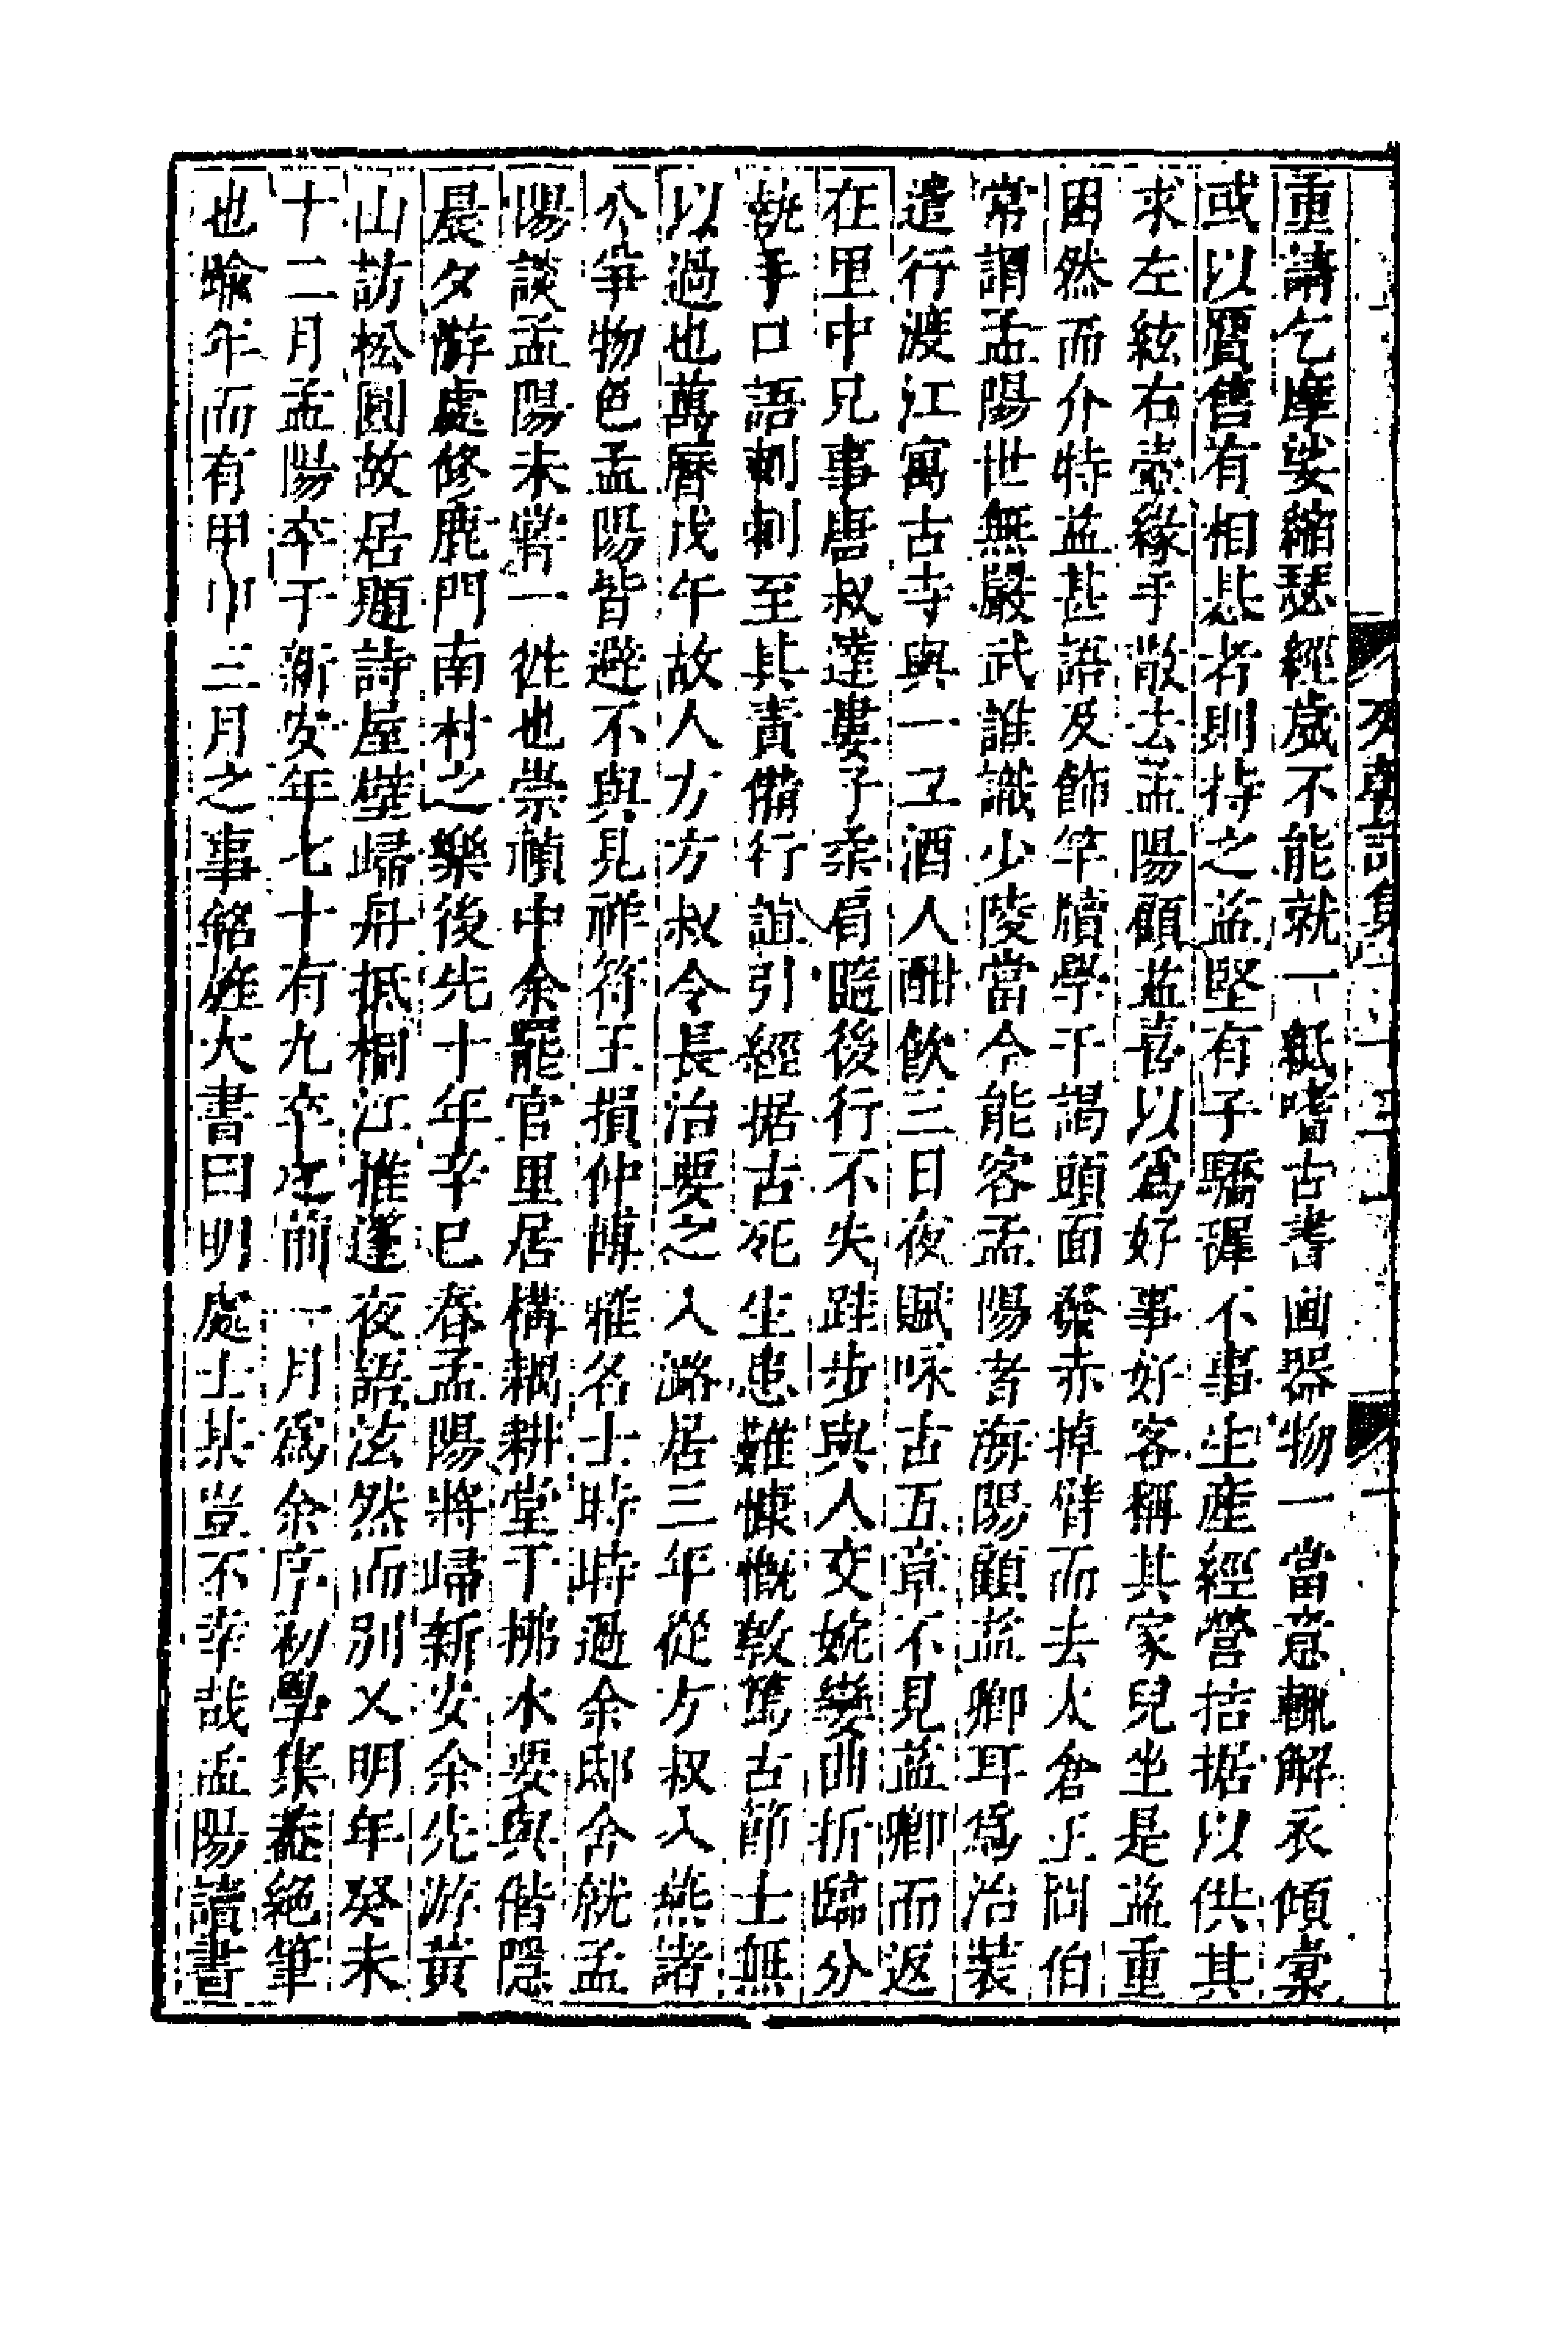 重請乞摩娑縮瑟經歲不能就一紙嗜古書画器物一當意輒解衣傾橐
或以贗售有相惎者則持之益堅有子驕穉不事生産經營拮据以供其
求左絃右壺緣手散去孟陽顧益喜以爲好事好客稱其家兒坐是益重
困然而介特益甚語及飾竿牘學干謁頭面發赤掉臂而去太倉王冏伯
常謂孟陽世無嚴武誰識少陵當今能客孟陽者海陽顧益卿耳爲治裝
遣行渡江寓古寺與一二酒人酣飲三日夜賦咏古五章不見益卿而返
在里中兄事唐叔達婁子柔肩隨後行不失跬步與人交婉孌曲折臨分
執手口語刺刺至其責備行誼引經据古死生患難慷慨敦篤古節士無
以過也萬曆戊午故人方方叔令長治要之入潞居三年從方叔入燕諸
公爭物色孟陽皆避不與見祥符王損仲博雅名士時時過余邸舍就孟
陽談孟陽未嘗一徃也崇禎中余罷官里居構耦耕堂于拂水要與偕隱
晨夕游處修鹿門南村之樂後先十年辛巳春孟陽將歸新安余先游黃
山訪松圓故居題詩屋壁歸舟抵桐江推蓬夜語泫然而别又明年癸未
十二月孟陽卒于新安年七十有九卒之前一月爲余序初學集葢絕筆
也踰年而有甲申三月之事銘旌大書曰明處士某豈不幸哉孟陽讀書
列朝詩集